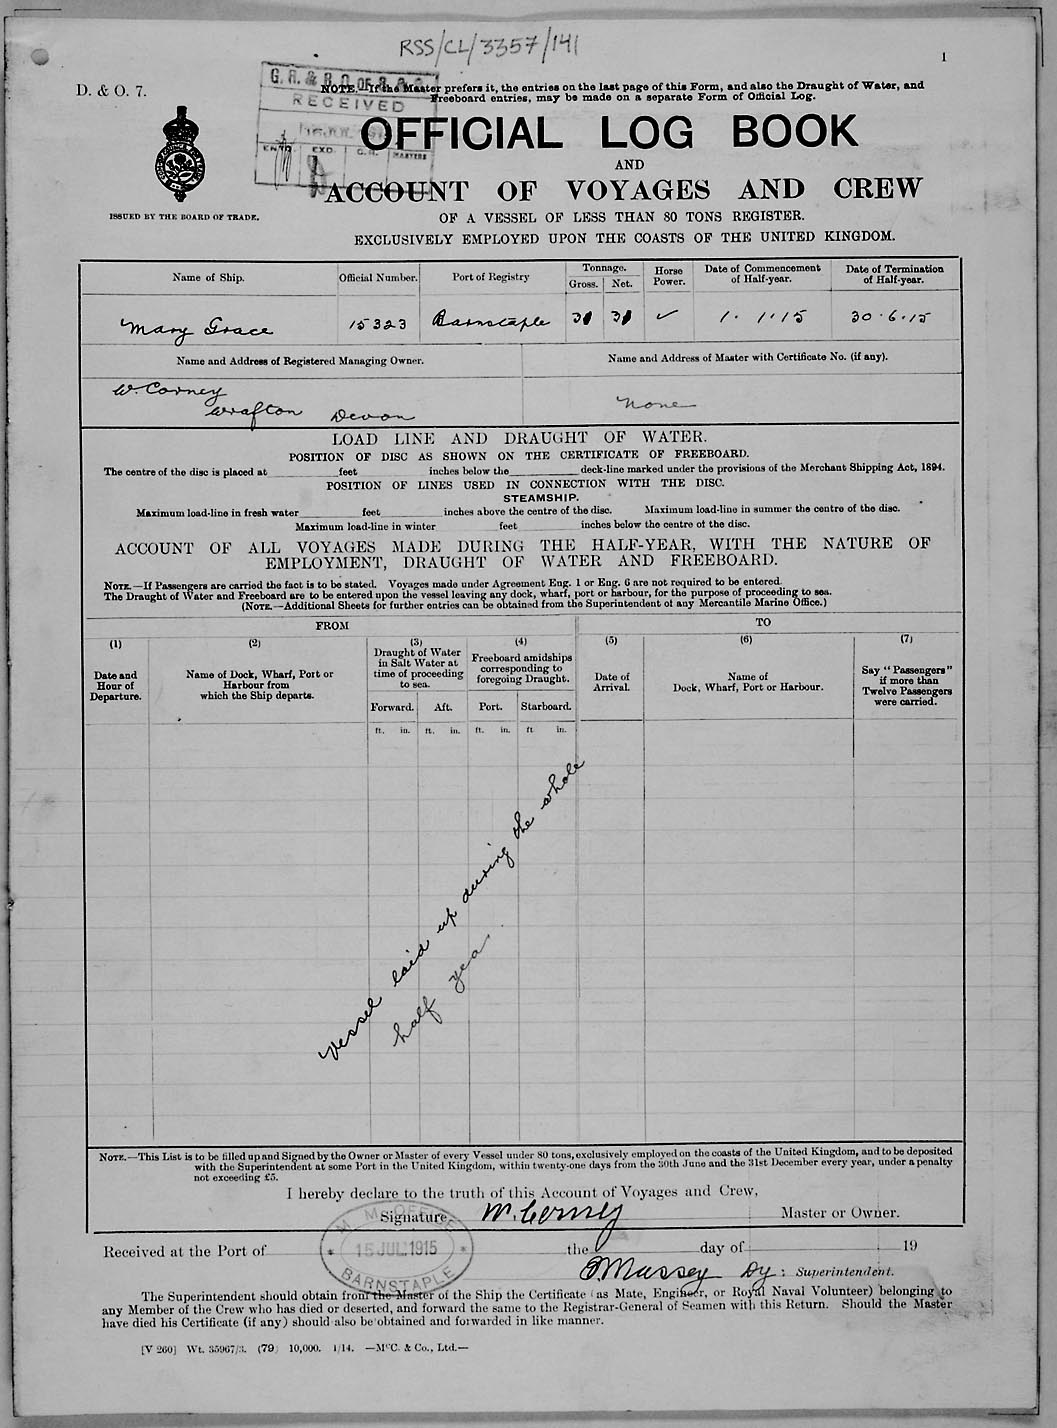 RSS/CL/3357/141
1
D. & O. 7.
G. R. & R. O. OF S. & S.
RECEIVED
JUL
ENTD EXD. C.R. MASTERS
NOTE.—If the Master prefers it, the entries on the last page of this Form, and also the Draught of Water, and
Freeboard entries, may be made on a separate Form of Official Log.
OFFICIAL LOG BOOK
AND
ACCOUNT OF VOYAGES AND CREW
ISSUED BY THE BOARD OF TRADE.
OF A VESSEL OF LESS THAN 80 TONS REGISTER.
EXCLUSIVELY EMPLOYED UPON THE COASTS OF THE UNITED KINGDOM.
Name of Ship. Official Number. Port of Registry Tonnage. Gross. Net. Horse Power. Date of Commencement of Half-year. Date of Termination of Half-year.
Mary Grace 15323 Barnstaple 31 31 ✓ 1.1.15 30.6.15
Name and Address of Registered Managing Owner. Name and Address of Master with Certificate No. (if any).
W. Corney
Wrafton Devon None
LOAD LINE AND DRAUGHT OF WATER.
POSITION OF DISC AS SHOWN ON THE CERTIFICATE OF FREEBOARD.
The centre of the disc is placed at feet inches below the deck-line marked under the provisions of the Merchant Shipping Act, 1894.
POSITION OF LINES USED IN CONNECTION WITH THE DISC.
STEAMSHIP.
Maximum load-line in fresh water feet inches above the centre of the disc. Maximum load-line in summer the centre of the disc.
Maximum load-line in winter feet inches below the centre of the disc.
ACCOUNT OF ALL VOYAGES MADE DURING THE HALF-YEAR, WITH THE NATURE OF
EMPLOYMENT, DRAUGHT OF WATER AND FREEBOARD.
NOTE.—If Passengers are carried the fact is to be stated. Voyages made under Agreement Eng. 1 or Eng. 6 are not required to be entered.
The Draught of Water and Freeboard are to be entered upon the vessel leaving any dock, wharf, port or harbour, for the purpose of proceeding to sea.
(NOTE.—Additional Sheets for further entries can be obtained from the Superintendent of any Mercantile Marine Office.)
FROM TO
(1) (2) (3) (4) (5) (6) (7)
Date and Hour of Departure.
Name of Dock, Wharf, Port or Harbour from which the Ship departs.
Draught of Water in Salt Water at time of proceeding to sea.
Freeboard amidships corresponding to foregoing Draught.
Date of Arrival.
Name of Dock, Wharf, Port or Harbour.
Say "Passengers" if more than Twelve Passengers were carried.
Forward. Aft. Port. Starboard.
ft. in. ft. in. ft. in. ft in.
Vessel laid up during the whole
half yea
NOTE.—This List is to be filled up and Signed by the Owner or Master of every Vessel under 80 tons, exclusively employed on the coasts of the United Kingdom, and to be deposited
with the Superintendent at some Port in the United Kingdom, within twenty-one days from the 30th June and the 31st December every year, under a penalty
not exceeding £5.
I hereby declare to the truth of this Account of Voyages and Crew,
Signature W. Corney Master or Owner.
M. M. OFFICE
15 JUL 1915
BARNSTAPLE
Received at the Port of the day of 19
Massey Dy: Superintendent.
The Superintendent should obtain from the Master of the Ship the Certificate (as Mate, Engineer, or Royal Naval Volunteer) belonging to
any Member of the Crew who has died or deserted, and forward the same to the Registrar-General of Seamen with this Return. Should the Master
have died his Certificate (if any) should also be obtained and forwarded in like manner.
[V 260] Wt. 35967/3. (79) 10,000. 1/14. —McC. & Co., Ltd.—